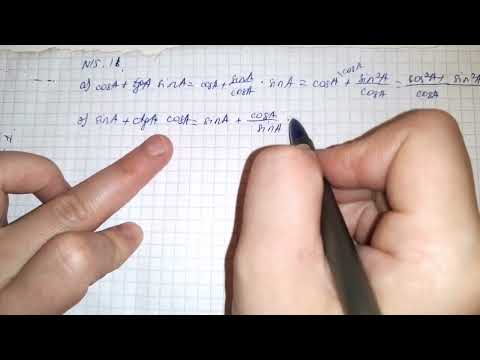 N15.18.
a) cosA + tgA sinA = cosA + sinA/cosA · sinA = cosA \cosA + sin²A/cosA = cos²A + sin²A/cosA
2) sinA + ctgA cosA = sinA + cosA/sinA ·